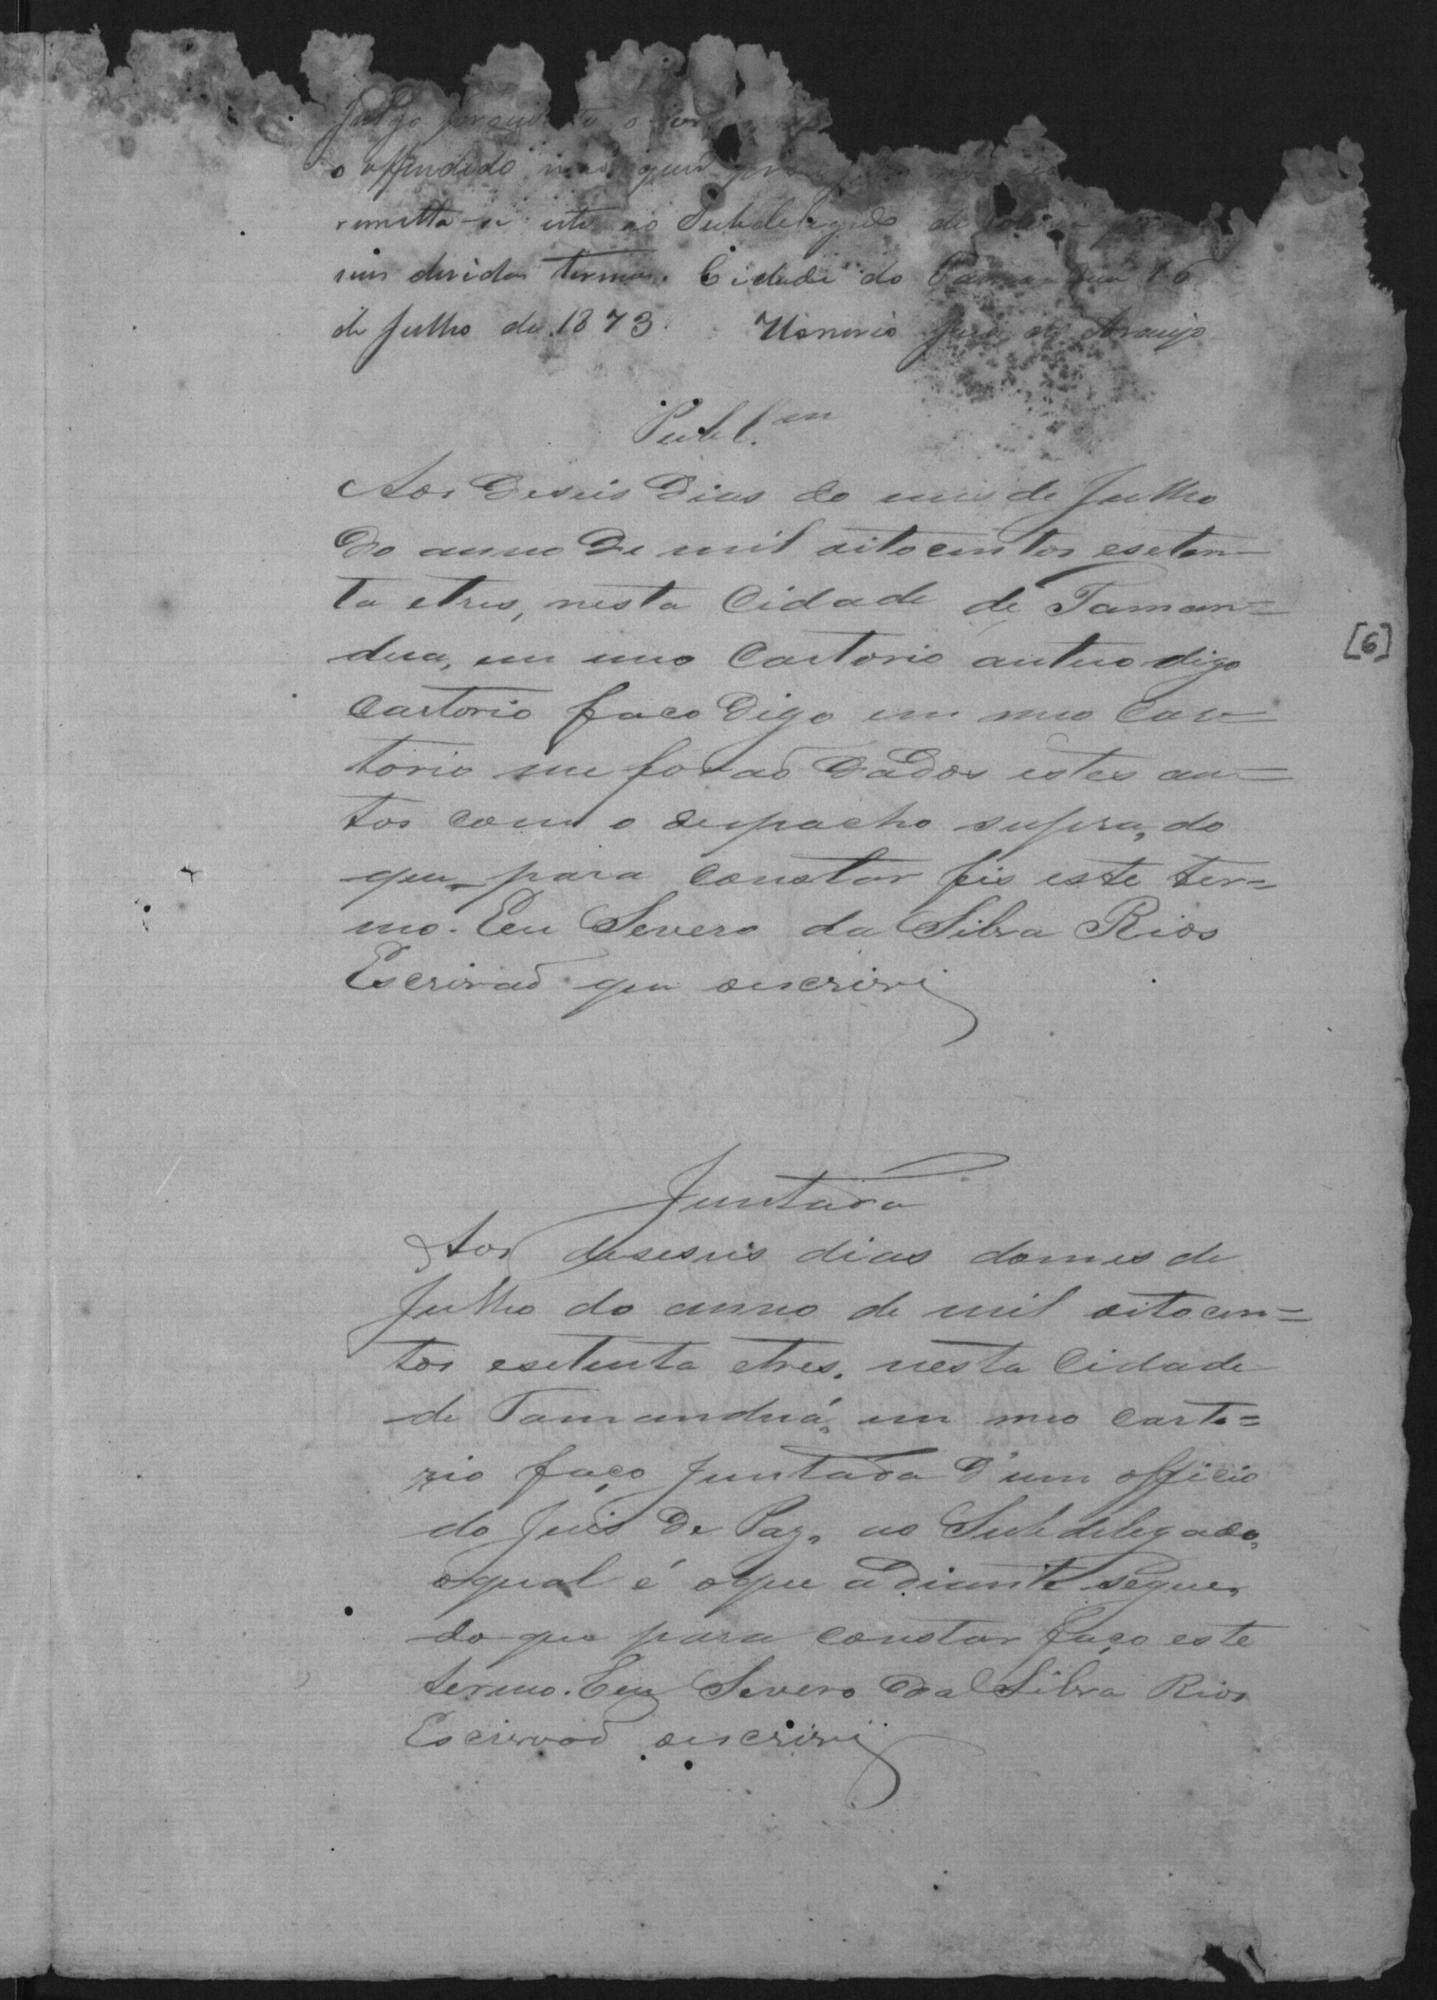 Julgo procedente o corpo
o offendido não quer
remetta-se este ao Subdelegado de Policia para
seus devidos termos. Cidade do Tamandua 16
de Julho de 1873. Honorio José de Araujo
Publ.am
Aos deseis dias do mes de Julho
do anno de mil oitocentos eseten=
ta etres, nesta Cidade de Taman=
dua, em meo Cartorio autuo digo
Cartorio faco digo em meo Car=
torio me forão dados estes au=
tos com o despacho supra, do
que para constar fis este ter=
mo. Eeu Severo da Silva Rios
Escrivaõ que oescrivi
[6]
Juntada
Aos deseseis dias domes de
Julho do anno de mil oitocen=
tos esetenta etres, nesta Cidade
de Tamanduá, em meo carto=
rio faço juntada d'um officio
do Juis de Paz, ao Subdelegado,
oqual é oque adiante segue,
do que para constar faço este
termo. Eeu Severo da Silva Rios
Escrivaõ oescrivi